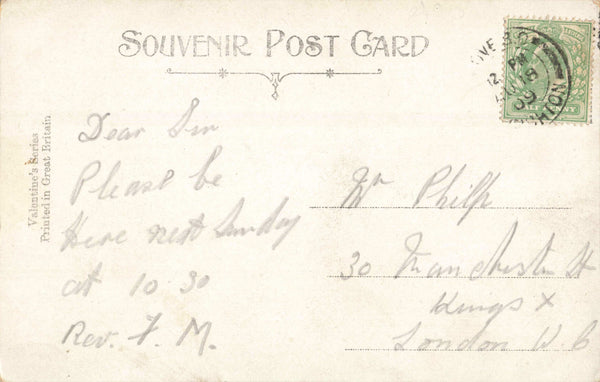 SOUVENIR POST CARD
Valentine's Series
Printed in Great Britain
Dear Sir
Please be
Here next Sunday
at 10.30
Rev. F. M.
12. PM
09
Mr Philp
30 Manchester St
Kings X
London W.C